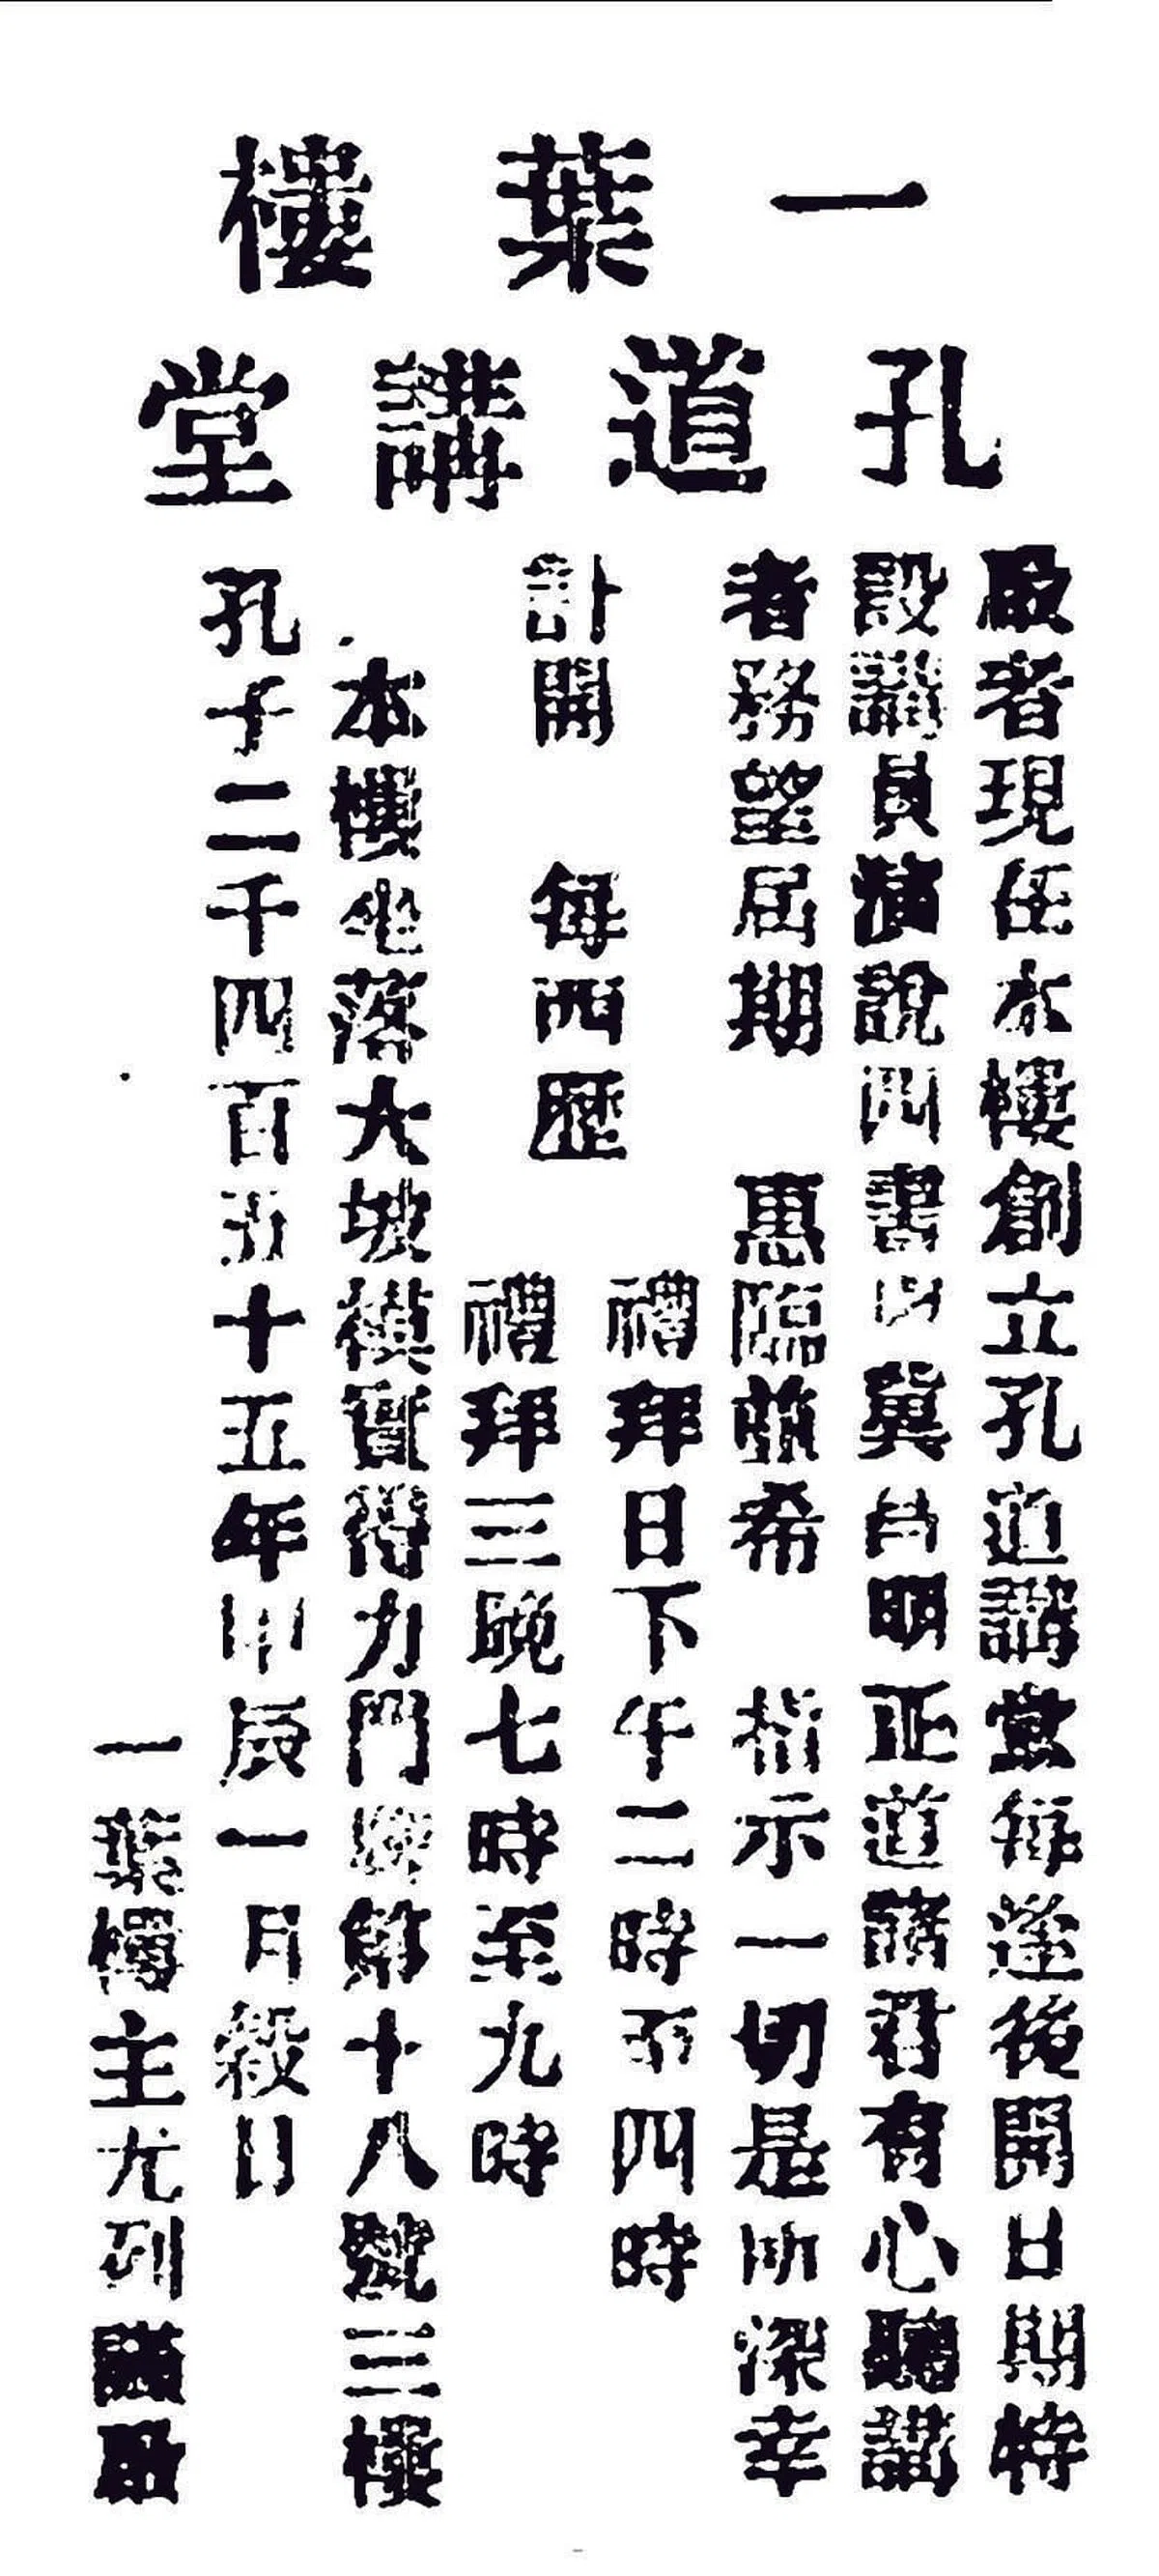 一葉樓
孔道講堂
啟者現在本樓創立孔道講堂每逢後開日期特
設講員演說四書以冀昌明正道諸君有心聽講
者務望屆期 惠臨並希 指示一切是所深幸
計開 每西歷
禮拜日下午二時至四時
禮拜三晚七時至九時
本樓坐落大坡 得力門第十八號三樓
孔子二千四百五十五年甲辰一月穀日
一葉樓主尤列謹啟